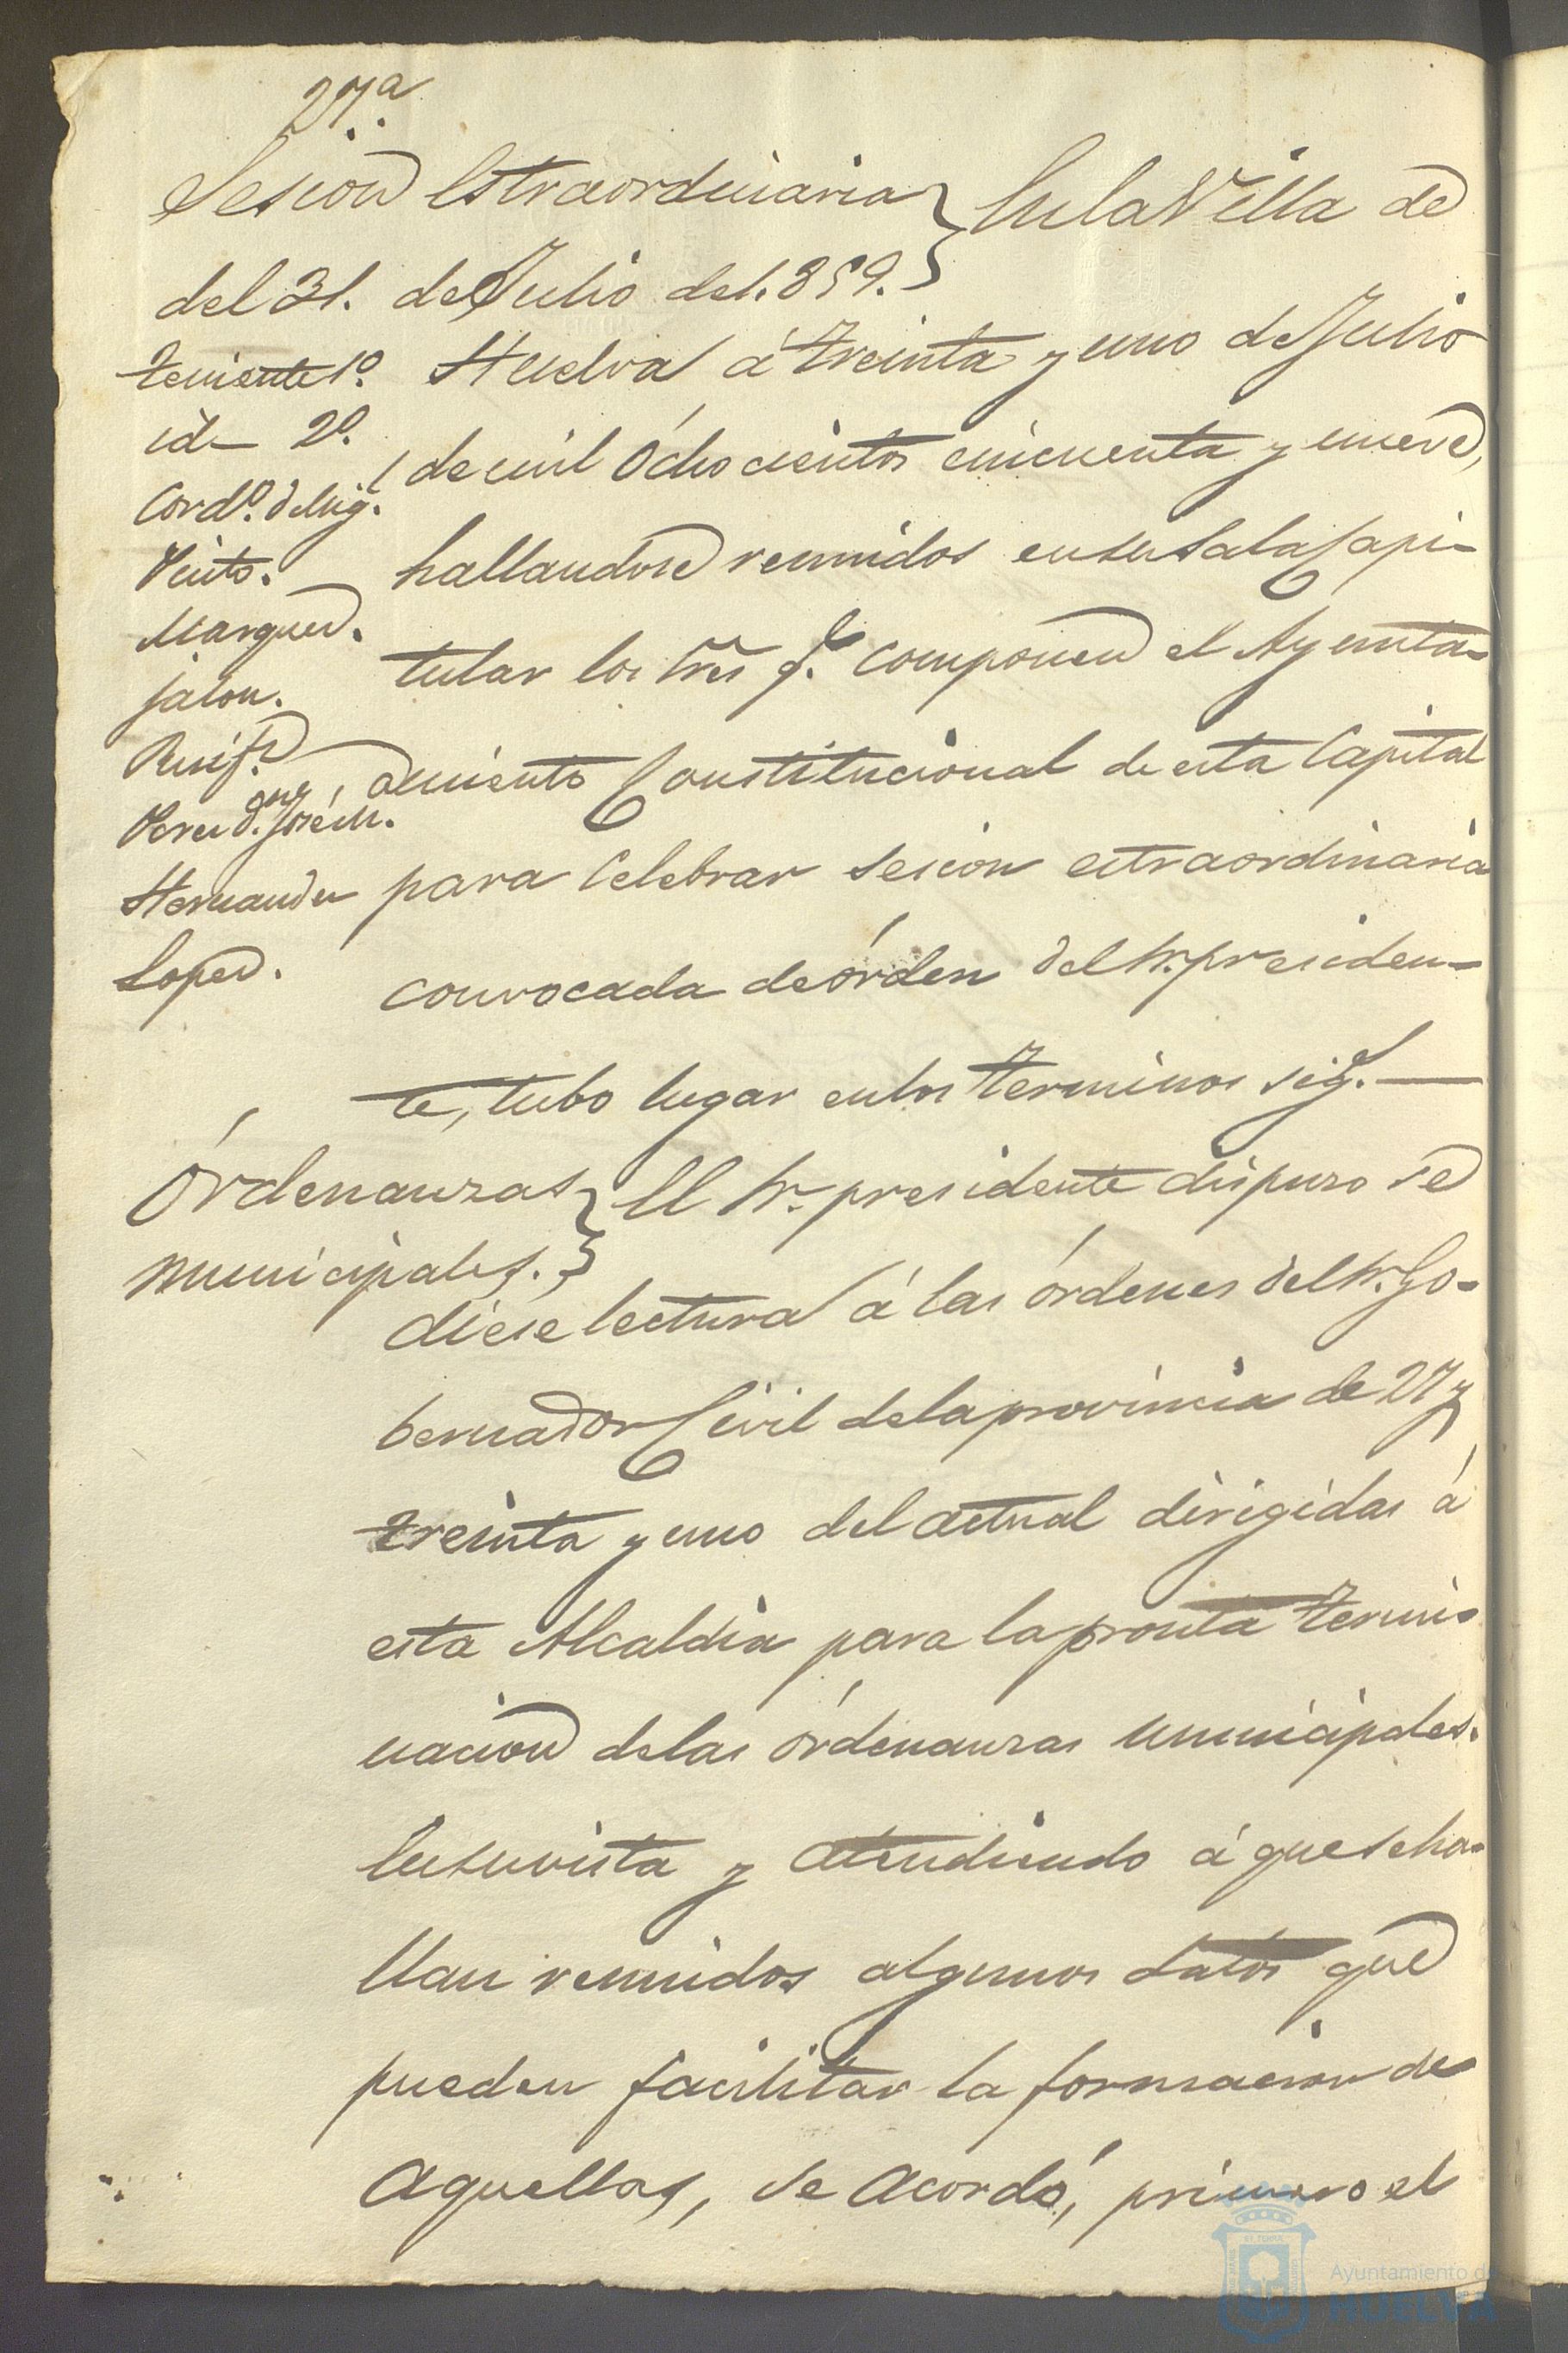 27ª
Sesion Estraordinaria
del 31. de Julio de 1.859.
En la Villa de
teniente 1º.
id 2º.
Cord.º
Pinto.
Marquez.
Jalon.
Perez d.n José M.
Hernandez
Lopez.
Huelva á treinta y uno de Julio
de mil óchocientos cincuenta y nueve,
hallandose reunidos en su Sala Capi-
tular los Sres q.e componen el Ayunta-
miento Constitucional de esta Capital
para Celebrar sesion estraordinaria
convocada de órden del Sr. presiden-
te, tubo lugar en los terminos sig.s
Órdenanzas
municipales.
El Sr. presidente dispuso se
diese lectura á las órdenes del Sr. Go-
bernador Civil de la provincia de 27 y
treinta y uno del actual dirigidas á
esta Alcaldia para la pronta termi-
nacion de las órdenanzas municipales.
En su vista y atendiendo á que se ha-
llan reunidos algunos datos que
pueden facilitar la formacion de
aquellas, se acordó, primero el
Ayuntamiento de
HUELVA